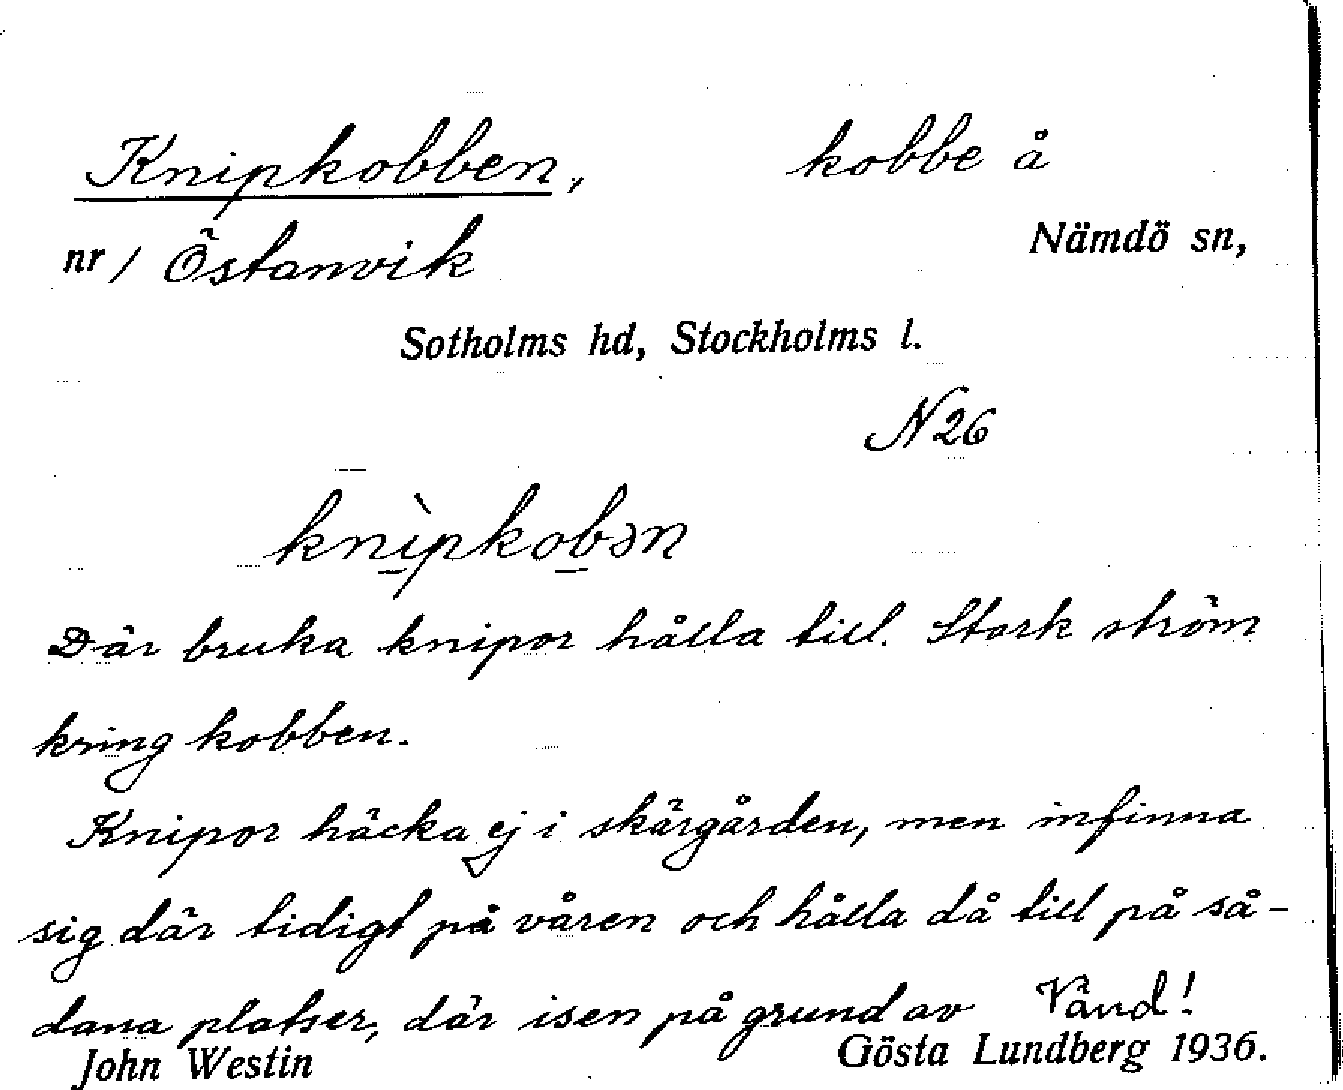 Knipkobben, kobbe å
nr / Östanvik Nämdö sn,
Sotholms hd, Stockholms l.
N 26
knìpkobən
Där bruka knipor hålla till. Stark ström
kring kobben.
Knipor häcka ej i skärgården, men infinna
sig där tidigt på våren och hålla då till på så-
dana platser, där isen på grund av Vänd!
John Westin Gösta Lundberg 1936.